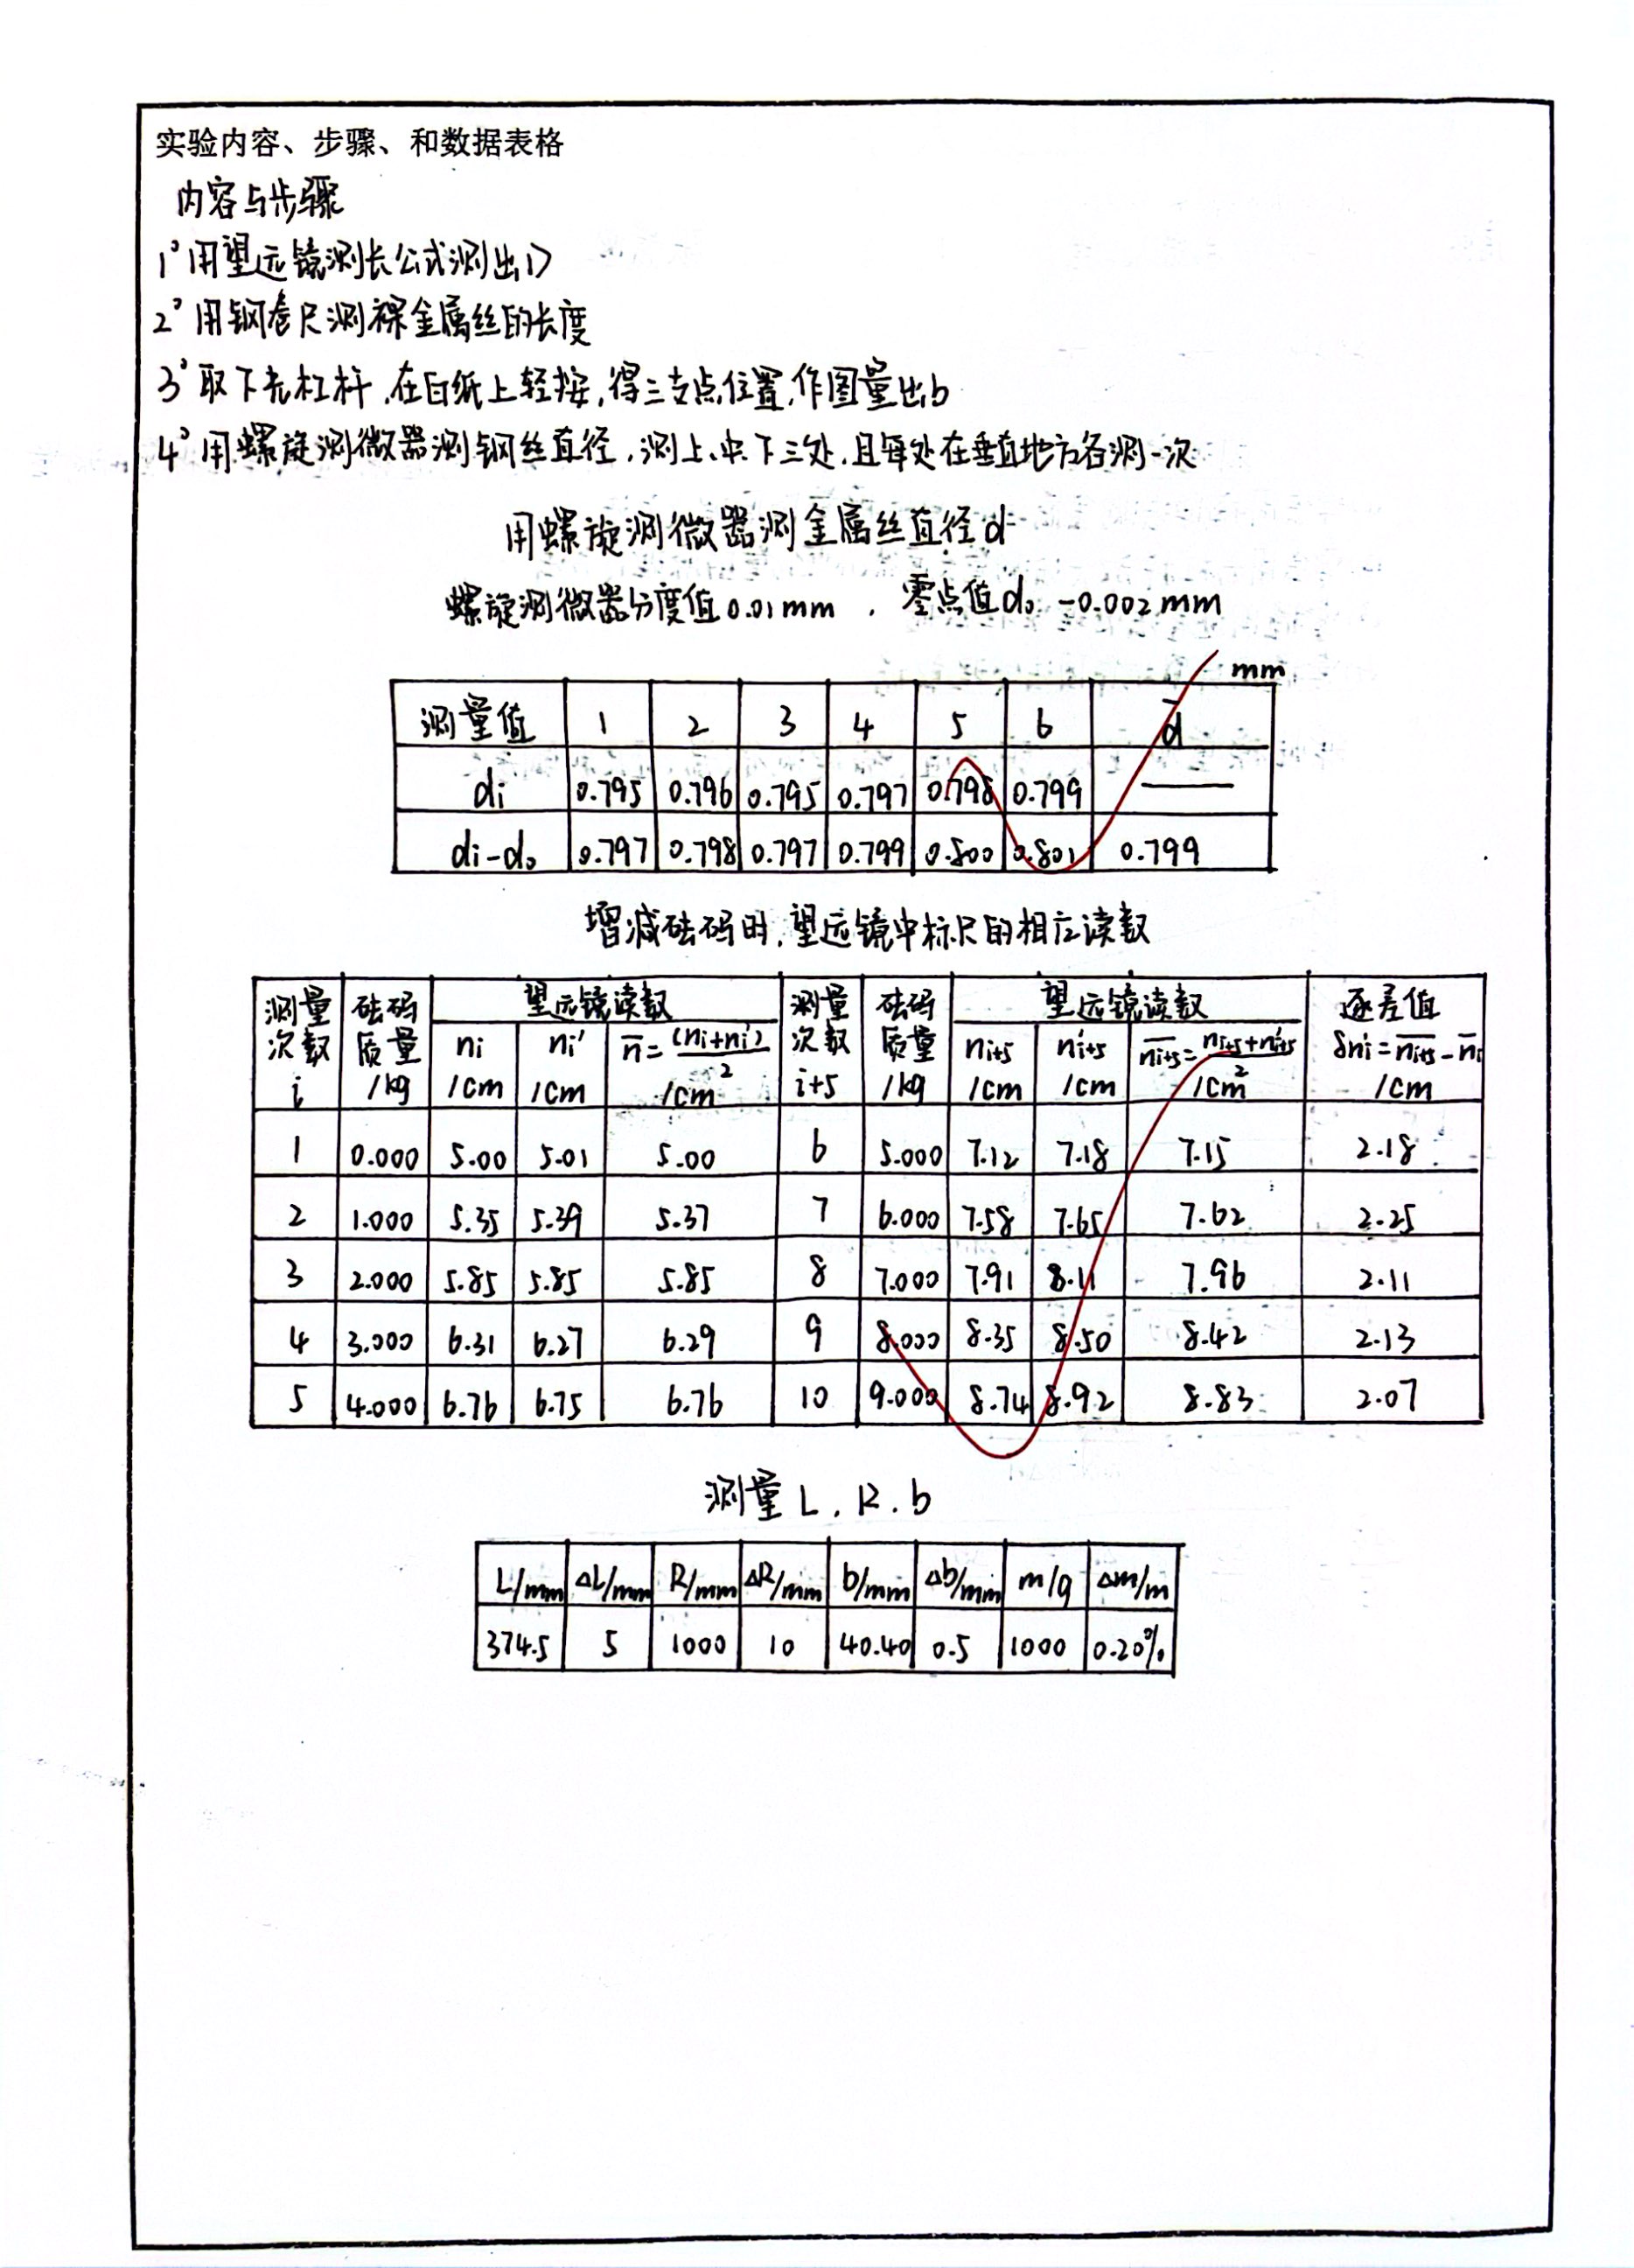 实验内容、步骤、和数据表格
内容与步骤
1° 用望远镜测长公式测出D
2° 用钢卷尺测裸金属丝的长度
3° 取下光杠杆,在白纸上轻按,得三支点位置,作图量出b
4° 用螺旋测微器测钢丝直径,测上、中、下三处,且每处在垂直地方各测一次
用螺旋测微器测金属丝直径d
螺旋测微器分度值0.01mm , 零点值d₀ -0.002mm
mm
测量值 1 2 3 4 5 6 d̄
di 0.795 0.796 0.795 0.797 0.798 0.799 ——
di-d₀ 0.797 0.798 0.797 0.799 0.800 0.801 0.799
增减砝码时,望远镜中标尺的相应读数
测量次数 i 砝码质量/kg 望远镜读数 测量次数 i+5 砝码质量/kg 望远镜读数 逐差值 δni=n̄i+5-n̄i /cm
ni /cm ni' /cm n̄=(ni+ni')/2 /cm ni+5 /cm n'i+5 /cm n̄i+5=(ni+5+n'i+5)/2 /cm
1 0.000 5.00 5.01 5.00 6 5.000 7.12 7.18 7.15 2.18
2 1.000 5.35 5.39 5.37 7 6.000 7.58 7.65 7.62 2.25
3 2.000 5.85 5.85 5.85 8 7.000 7.91 8.11 7.96 2.11
4 3.000 6.31 6.27 6.29 9 8.000 8.35 8.50 8.42 2.13
5 4.000 6.76 6.75 6.76 10 9.000 8.74 8.92 8.83 2.07
测量 L, R, b
L/mm ΔL/mm R/mm ΔR/mm b/mm Δb/mm m/g Δm/m
374.5 5 1000 10 40.40 0.5 1000 0.20%